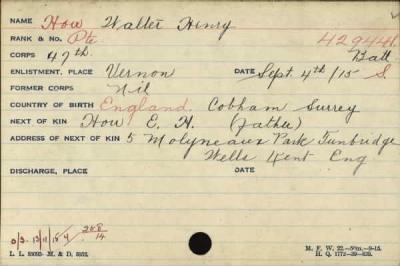 NAME How Walter Henry
RANK & No. Pte 429441
CORPS 47th. Batt
ENLISTMENT, PLACE Vernon DATE Sept. 4th/15 S
FORMER CORPS Nil
COUNTRY OF BIRTH England. Cobham Surrey
NEXT OF KIN How E. H. (father)
ADDRESS OF NEXT OF KIN 5 Molyneaux Park Tunbridge
Wells Kent Eng
DISCHARGE, PLACE DATE
0/S. 13/11/15
M. F. W. 22.
H. Q. 1772-39-